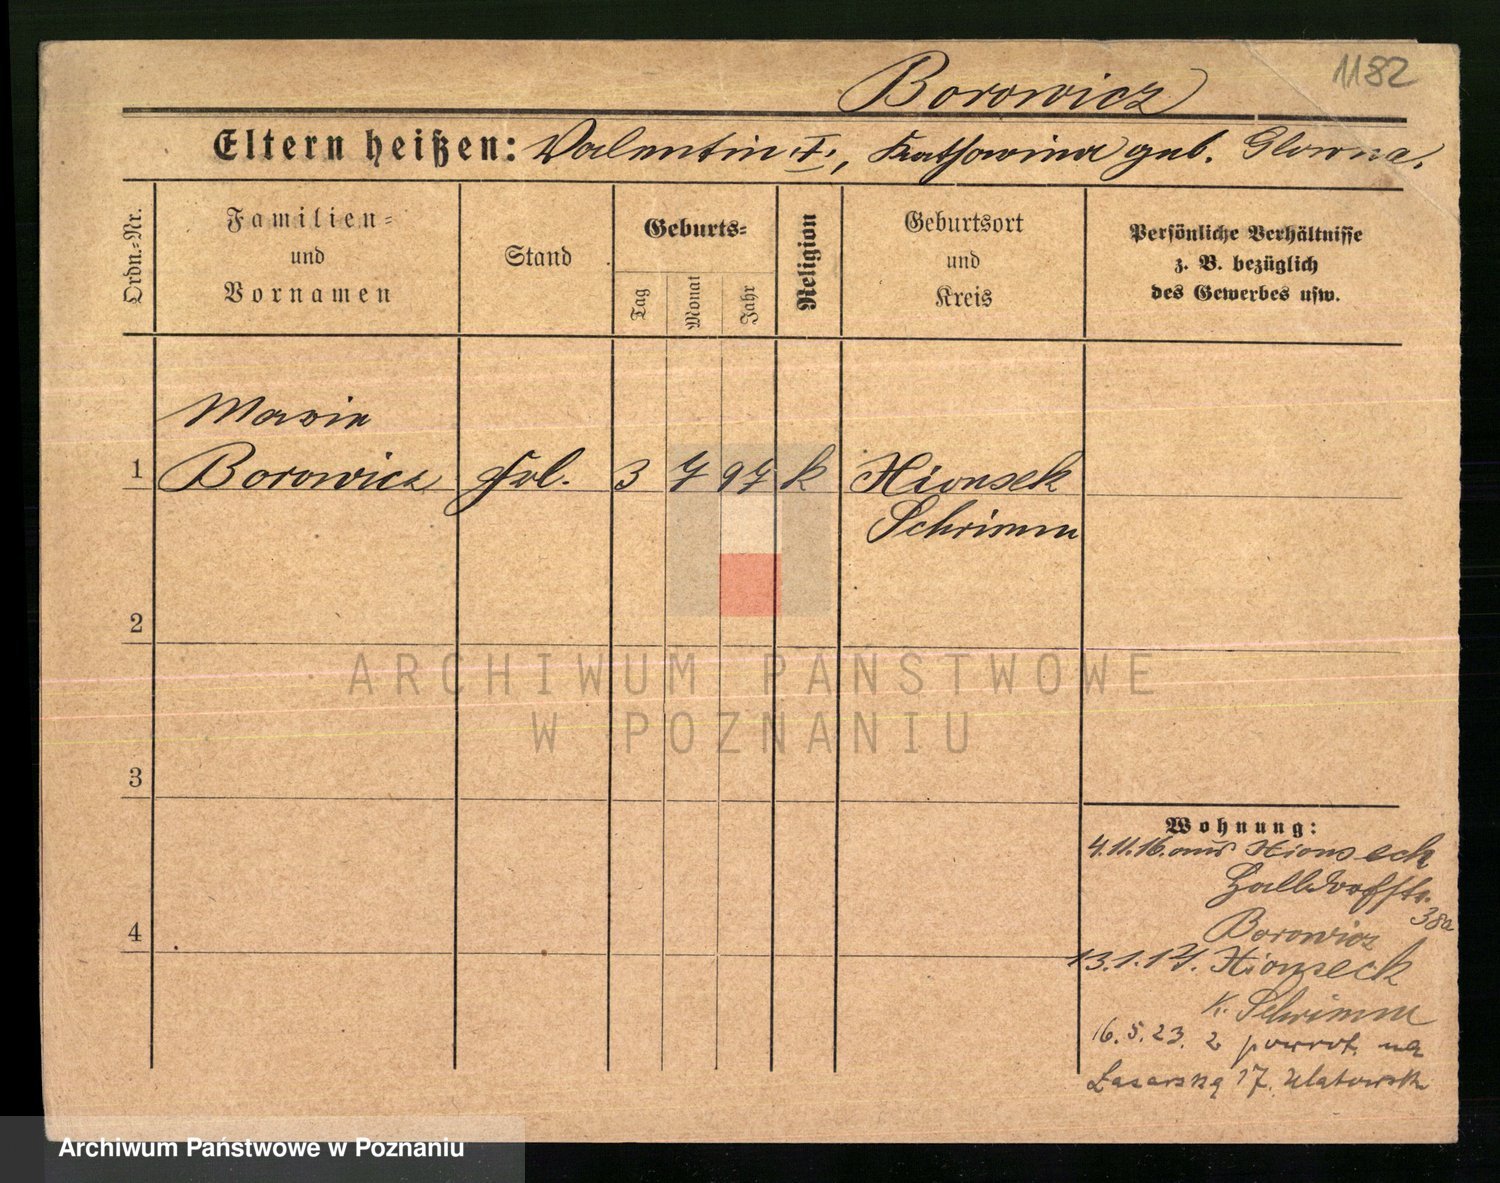 1182
Borowicz
Eltern heißen: Valentin †, Katharina geb. Glowna.
Ordn.-Nr.
Familien-
und
Vornamen
Stand
Geburts-
Tag
Monat
Jahr
Religion
Geburtsort
und
Kreis
Persönliche Verhältnisse
z. B. bezüglich
des Gewerbes usw.
Marie
1 Borowicz Frl. 3 7 97 k Xionsek
Schrimm
2
3
4
Wohnung:
4.11.16. aus Xionseck
Halldorfstr.
38a
Borowicz
13.1.17. Xionseck
K. Schrimm
16.5.23. z powrot. na
Łazarską 17, Ulatowsk
ARCHIWUM PAŃSTWOWE
W POZNANIU
Archiwum Państwowe w Poznaniu